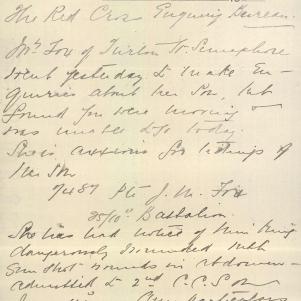 The Red Cross Enquiry Bureau.
Mrs Fox of Turton St. Semaphore
went yesterday to make En-
quiries about her Son, but
found you were moving &
was unable to go today.
She is anxious for tidings of
her Son
Pte J. M. Fox
Battalion.
She has had notice of him being
dangerously wounded with
Gun Shot wounds in abdomen -
admitted to 2nd C.C.S. on
particulars